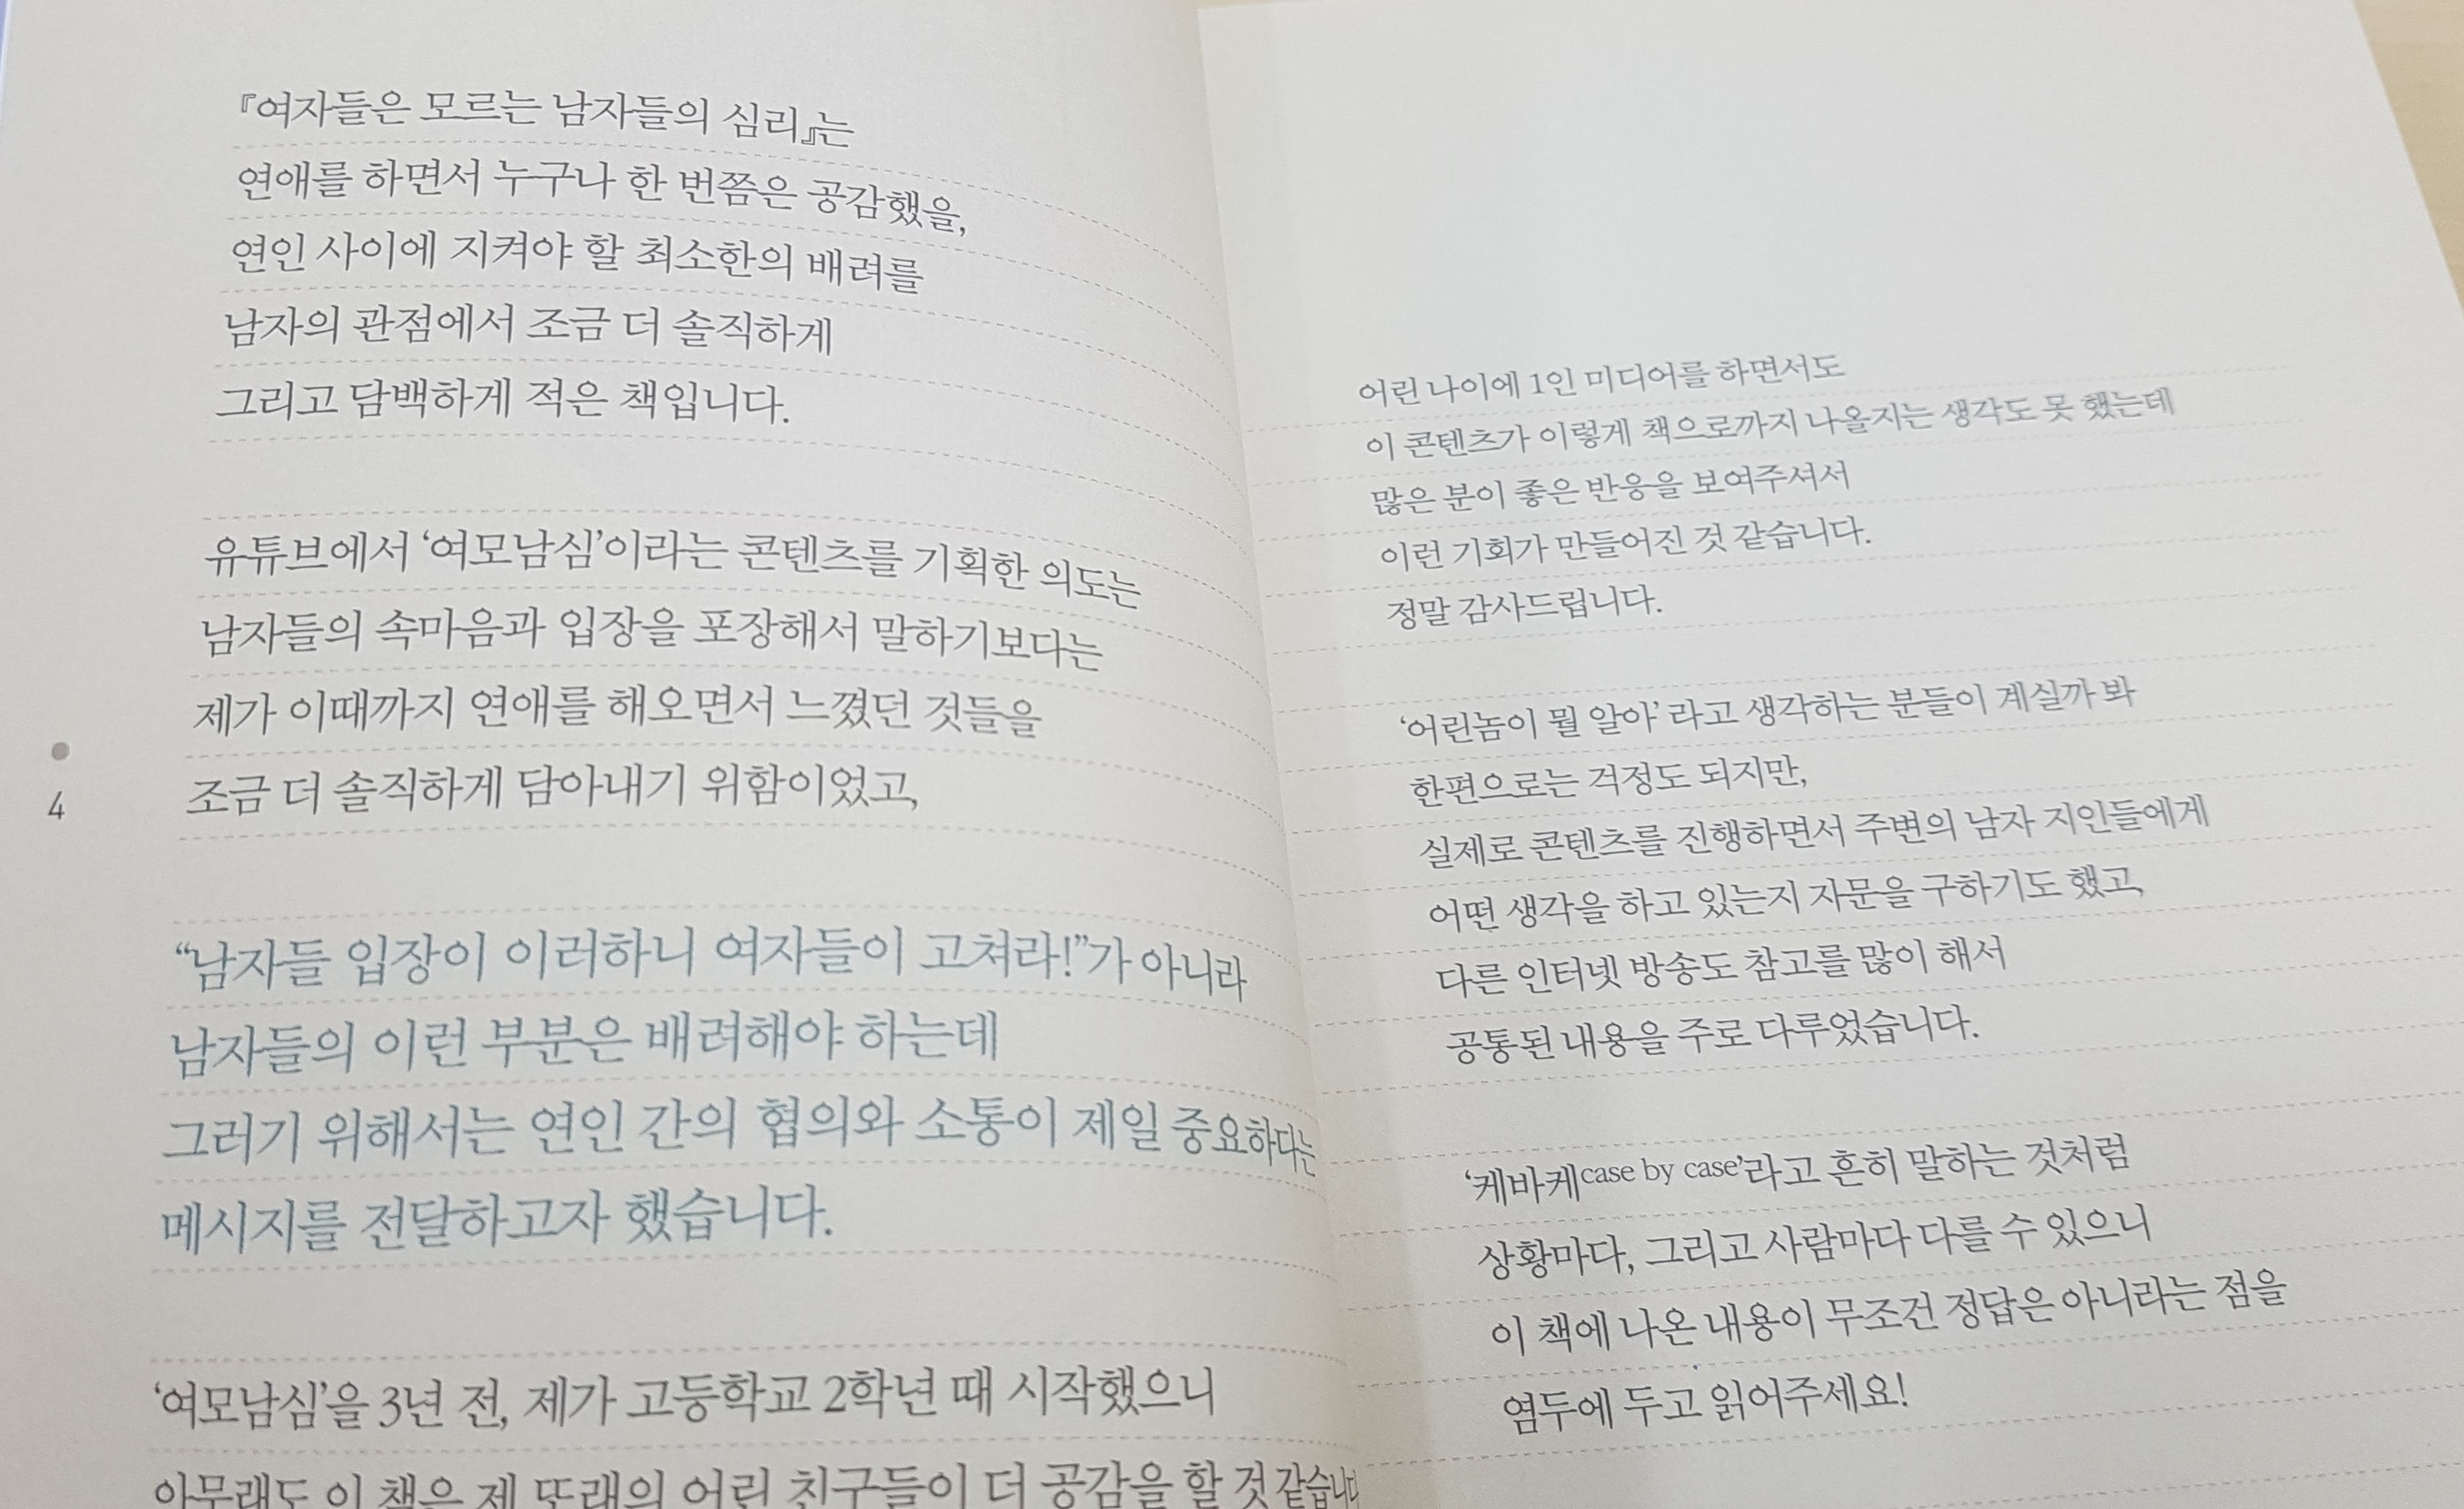 『여자들은 모르는 남자들의 심리』는
연애를 하면서 누구나 한 번쯤은 공감했을,
연인 사이에 지켜야 할 최소한의 배려를
남자의 관점에서 조금 더 솔직하게
그리고 담백하게 적은 책입니다.
유튜브에서 ‘여모남심’이라는 콘텐츠를 기획한 의도는
남자들의 속마음과 입장을 포장해서 말하기보다는
제가 이때까지 연애를 해오면서 느꼈던 것들을
조금 더 솔직하게 담아내기 위함이었고,
4
“남자들 입장이 이러하니 여자들이 고쳐라!”가 아니라
남자들의 이런 부분은 배려해야 하는데
그러기 위해서는 연인 간의 협의와 소통이 제일 중요하다는
메시지를 전달하고자 했습니다.
‘여모남심’을 3년 전, 제가 고등학교 2학년 때 시작했으니
아무래도 이 책은 제 또래의 어린 친구들이 더 공감을 할 것 같습니다
어린 나이에 1인 미디어를 하면서도
이 콘텐츠가 이렇게 책으로까지 나올지는 생각도 못 했는데
많은 분이 좋은 반응을 보여주셔서
이런 기회가 만들어진 것 같습니다.
정말 감사드립니다.
‘어린놈이 뭘 알아’ 라고 생각하는 분들이 계실까 봐
한편으로는 걱정도 되지만,
실제로 콘텐츠를 진행하면서 주변의 남자 지인들에게
어떤 생각을 하고 있는지 자문을 구하기도 했고,
다른 인터넷 방송도 참고를 많이 해서
공통된 내용을 주로 다루었습니다.
‘케바케case by case’라고 흔히 말하는 것처럼
상황마다, 그리고 사람마다 다를 수 있으니
이 책에 나온 내용이 무조건 정답은 아니라는 점을
염두에 두고 읽어주세요!